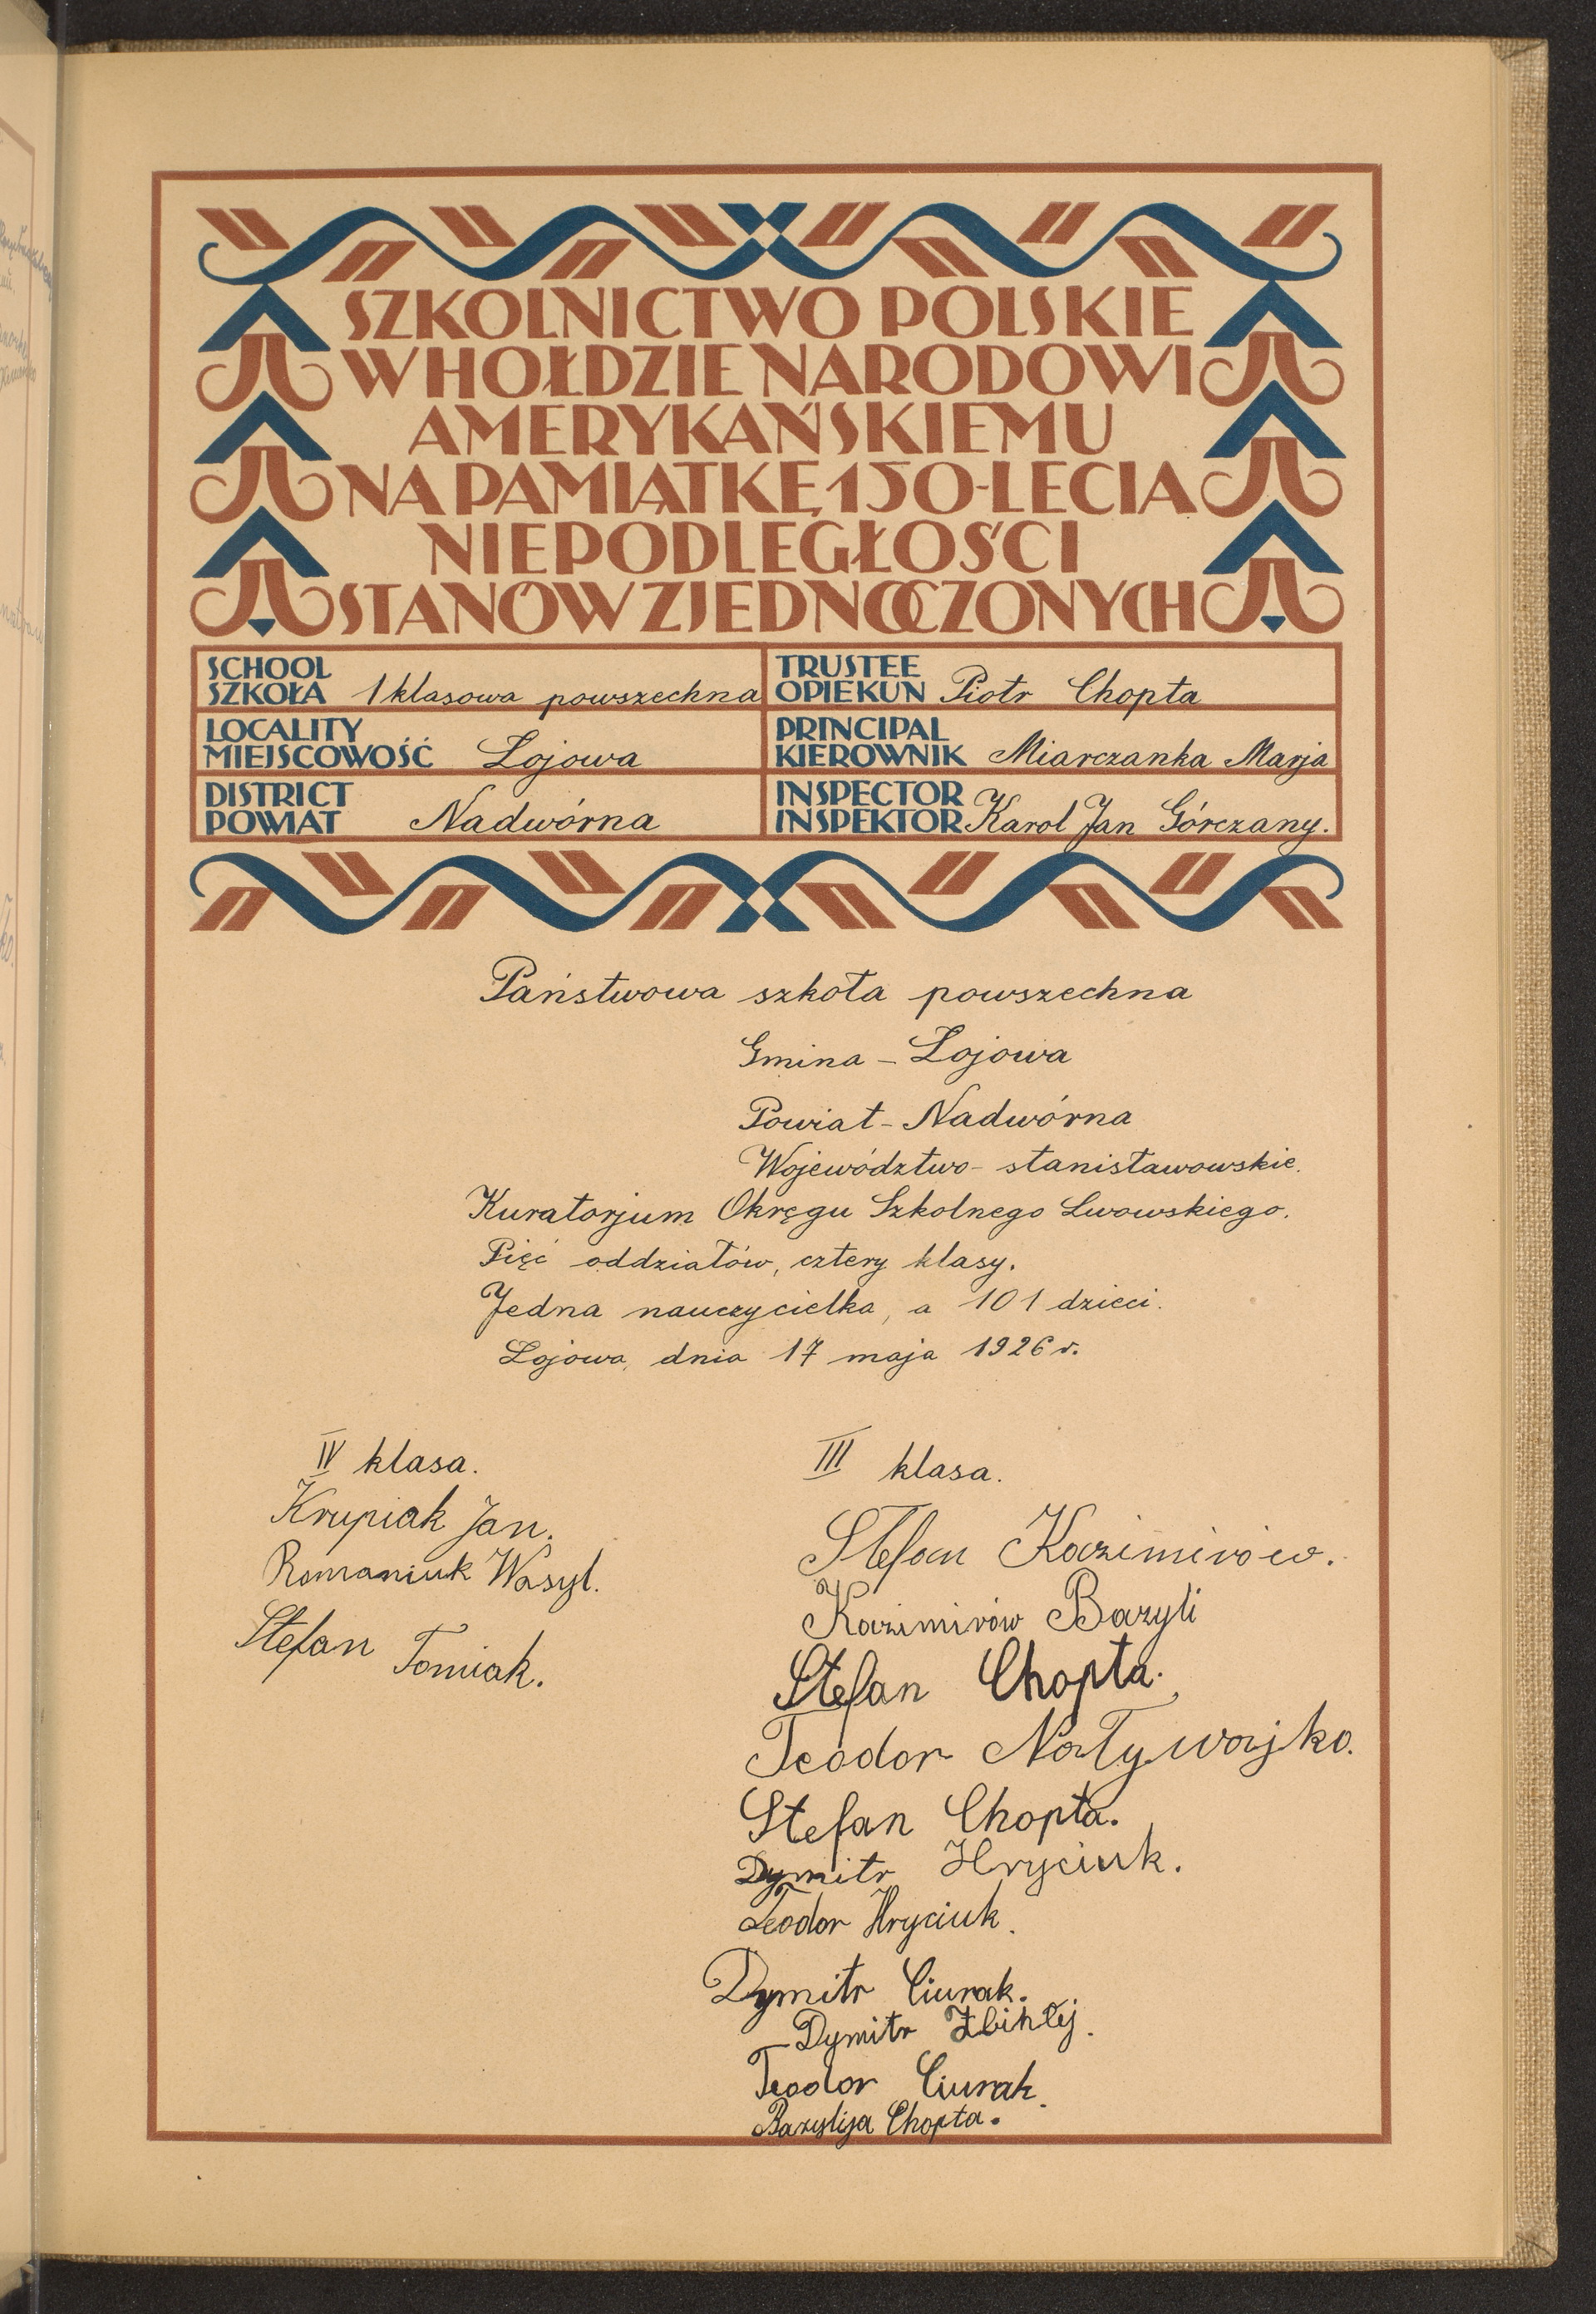 SZKOLNICTWO POLSKIE
W HOŁDZIE NARODOWI
AMERYKAŃSKIEMU
NA PAMIĄTKĘ 150-LECIA
NIEPODLEGŁOŚCI
STANÓW ZJEDNOCZONYCH
SCHOOL
SZKOŁA 1 klasowa powszechna
TRUSTEE
OPIEKUN Piotr Chopta
LOCALITY
MIEJSCOWOŚĆ Łojowa
PRINCIPAL
KIEROWNIK Miarczanka Marja
DISTRICT
POWIAT Nadwórna
INSPECTOR
INSPEKTOR Karol Jan Górczany.
Państwowa szkoła powszechna
Gmina - Łojowa
Powiat - Nadwórna
Województwo - stanisławowskie.
Kuratorjum Okręgu Szkolnego Lwowskiego.
Pięć oddziałów, cztery klasy.
Jedna nauczycielka, a 101 dzieci.
Łojowa, dnia 17 maja 1926 r.
IV klasa.
Krupiak Jan.
Romaniuk Wasyl.
Stefan Tomiak.
III klasa.
Stefan Kazimirów.
Kazimirów Bazyli
Stefan Chopta.
Teodor Natywajko.
Stefan Chopta.
Dymitr Hryciuk.
Teodor Hryciuk.
Dymitr Ciurak.
Dymitr
Teodor Ciurak.
Bazylija Chopta.